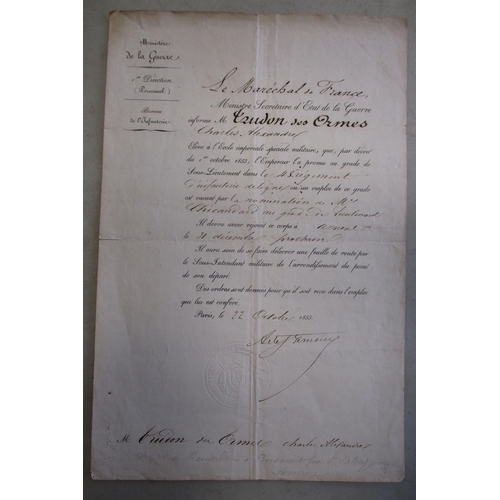 Ministère
de la Guerre
1re Direction
(Personnel)
Bureau
de l'Infanterie
Le Maréchal de France,
Ministre Secrétaire d'Etat de la Guerre
informe M. Trudon des Ormes
Charles Alexandre
Elève à l'Ecole impériale spéciale militaire, que, par décret
du 1er octobre 1855, l'Empereur l'a promu au grade de
Sous-Lieutenant dans le Régiment
d'infanterie de ligne où un emploi de ce grade
est vacant par la nomination de Mr
au grade de Lieutenant
Il devra avoir rejoint ce corps à
le 31 décembre prochain
Il aura soin de se faire délivrer une feuille de route par
le Sous-Intendant militaire de l'arrondissement du point
de son départ.
Des ordres sont donnés pour qu'il soit reçu dans l'emploi
qui lui est conféré.
Paris, le 22 Octobre 1855.
M Trudon des Ormes Charles Alexandre